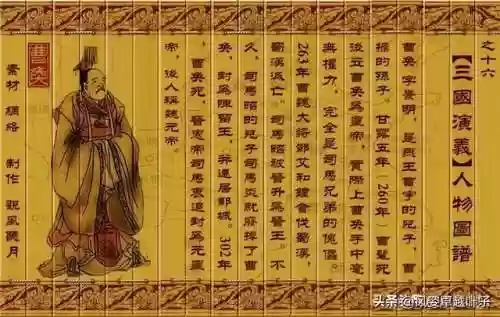 之十六
【三國演義】人物圖譜
曹奐字景明，是燕王曹宇的兒子，曹
操的孫子。甘露五年（260年）曹髦死
後立曹奐爲皇帝，實際上曹奐手中毫
無權力，完全是司馬兄弟的傀儡。
263年曹魏大將鄧艾和鍾會伐蜀漢，
蜀漢滅亡。司馬昭被晉升爲晉王。不
久，司馬昭的兒子司馬炎就廢掉了曹
奐，封爲陳留王，并遷居鄴城。302年
曹奐死，晉惠帝司馬衷追封爲元皇
帝，後人稱魏元帝。
曹奐
素材 網絡 制作 觀風聽月
头条 卓越叶子